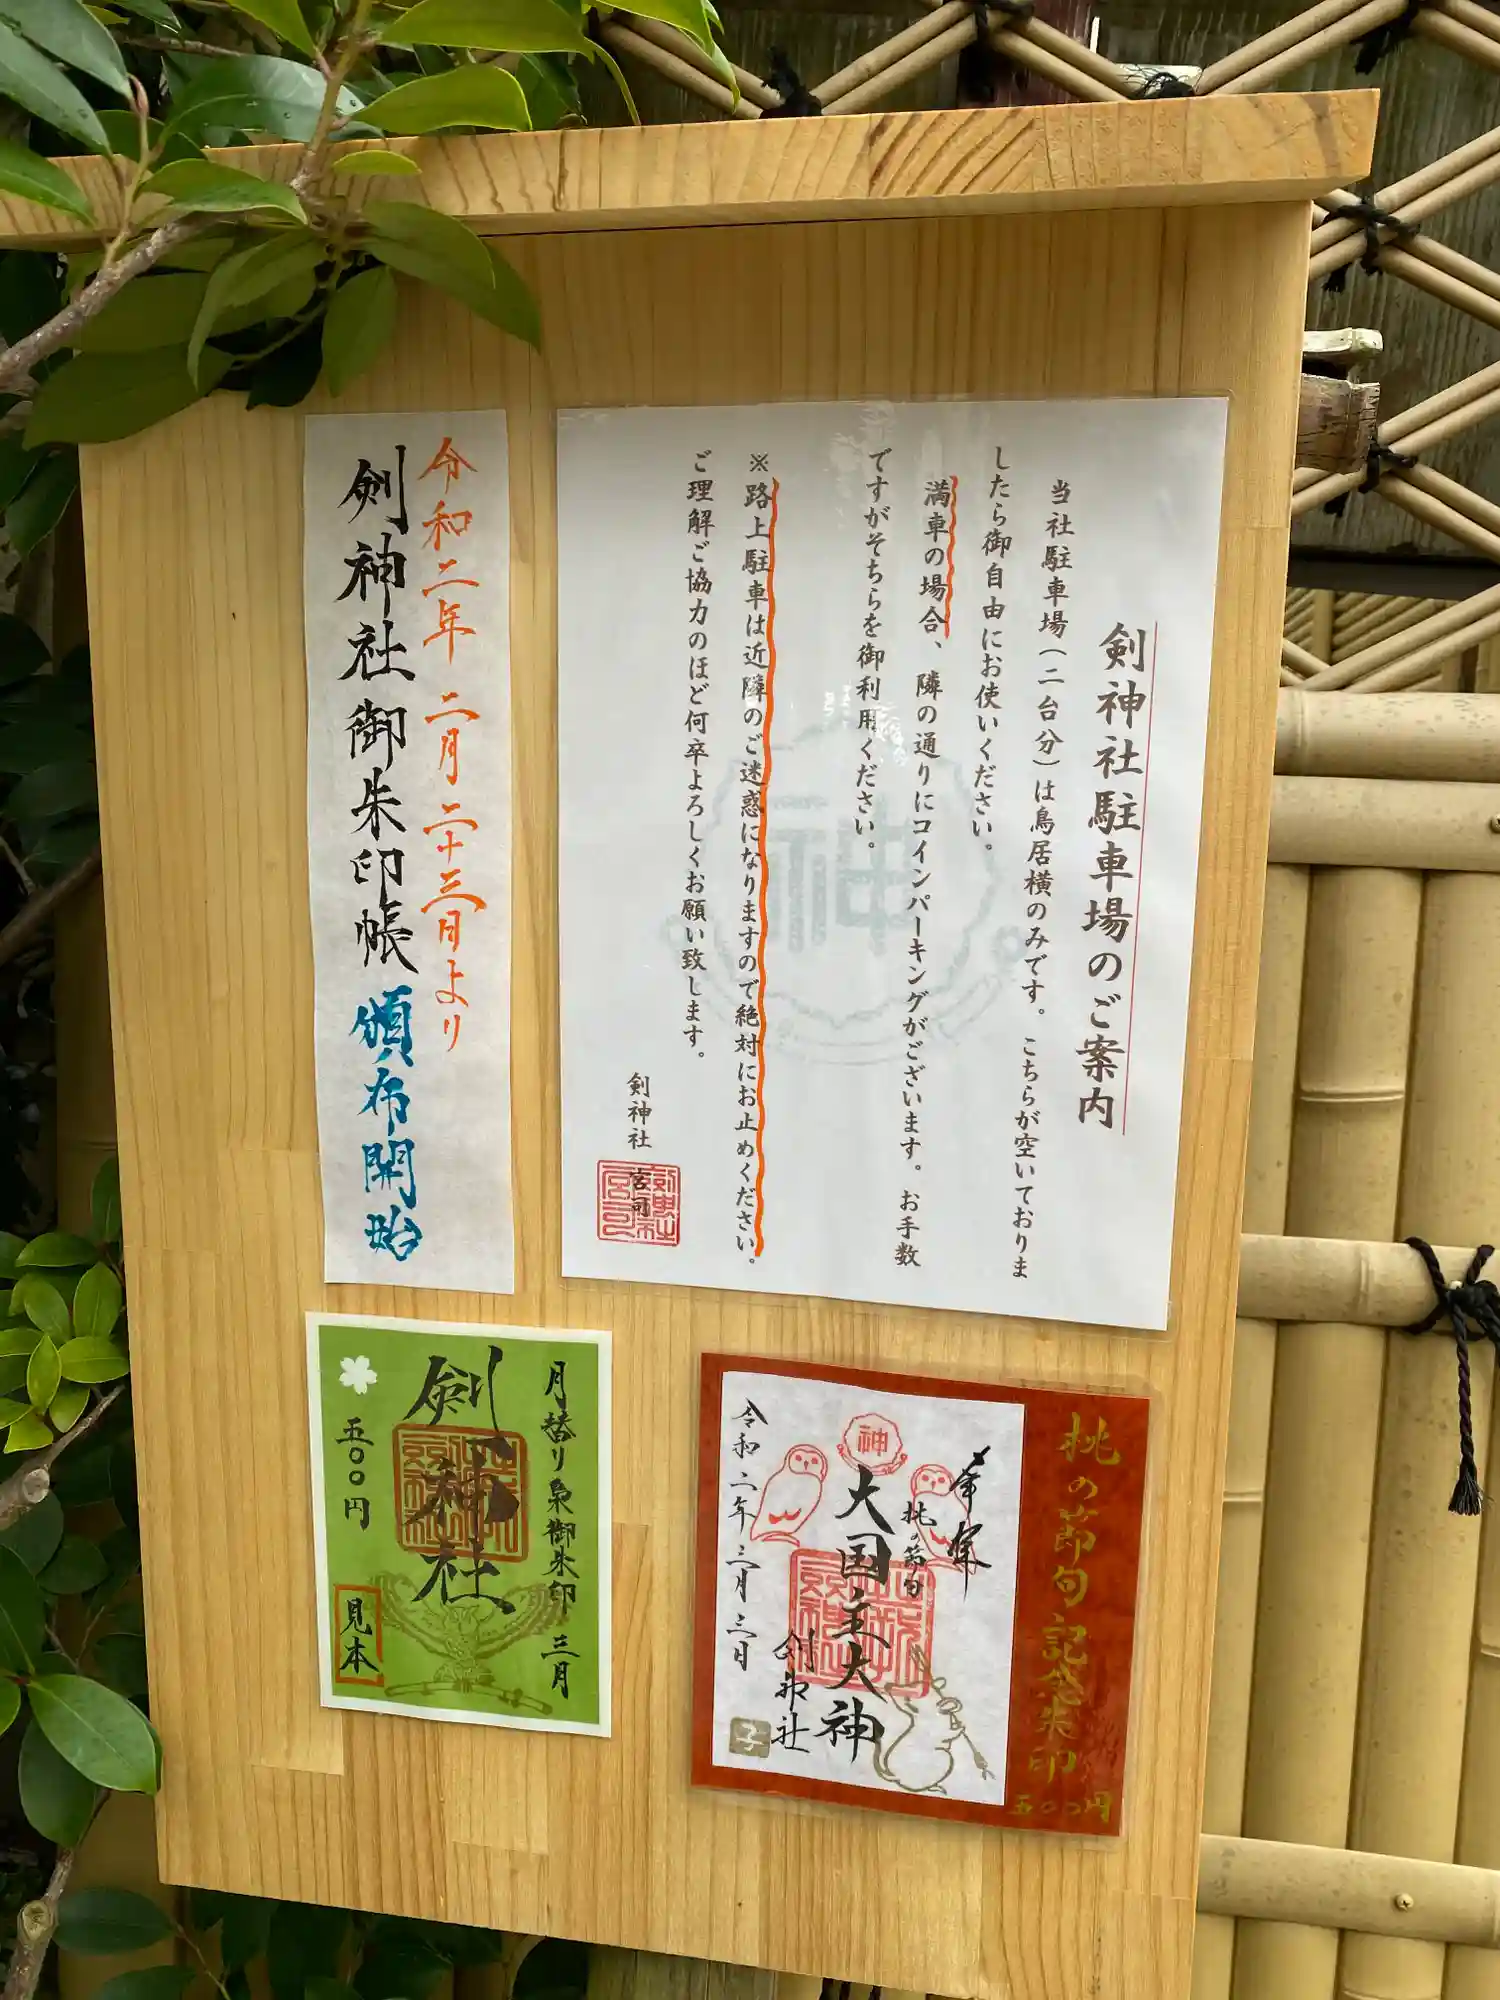 剣神社駐車場のご案内
当社駐車場(二台分)は鳥居横のみです。こちらが空いておりま
したら御自由にお使いください。
満車の場合、隣の通りにコインパーキングがございます。お手数
ですがそちらを御利用ください。
※路上駐車は近隣のご迷惑になりますので絶対にお止めください。
ご理解ご協力のほど何卒よろしくお願い致します。
剣神社 宮司
神
令和二年 二月二十三日より
剣神社御朱印帳 頒布開始
桃の節句記念朱印
五〇〇円
奉拝
桃の節句
神
大国主大神
剣神社
令和二年三月三日
子
月替り梟御朱印 三月
剣神社
五〇〇円
見本